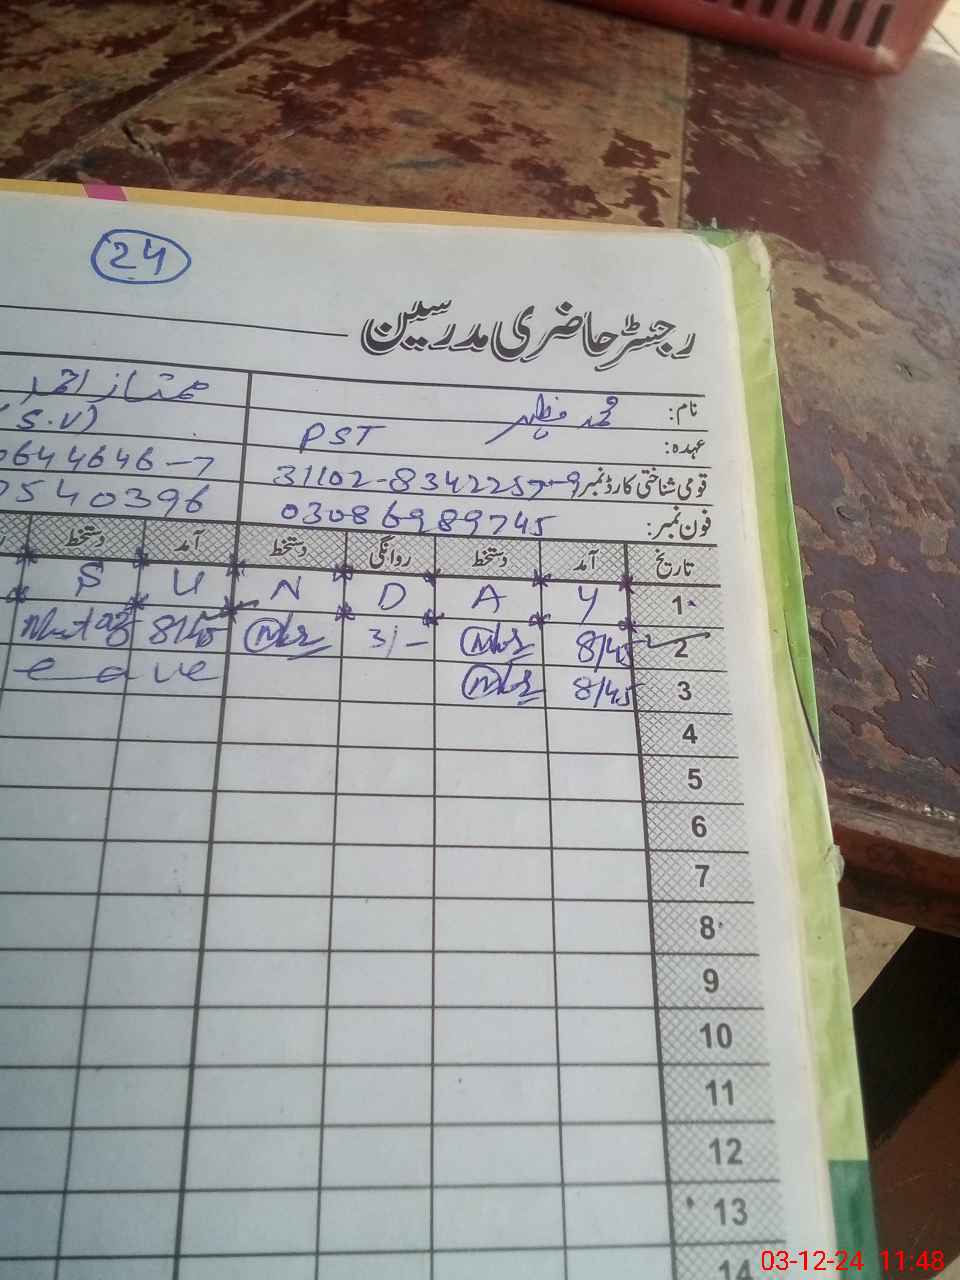 24
رجسٹر حاضری مدرسین
نام: محمد مظہر ممتاز احمد
عہدہ: PST (S.V)
قومی شناختی کارڈ نمبر 31102-8342257-9 0644646-7
فون نمبر: 03086989745 7540396
تاریخ آمد دستخط روانگی دستخط آمد دستخط
1 Y A D N U S
2 8/45 3/- 8/45
3 8/45 eave
4
5
6
7
8
9
10
11
12
13
14
03-12-24 11:48